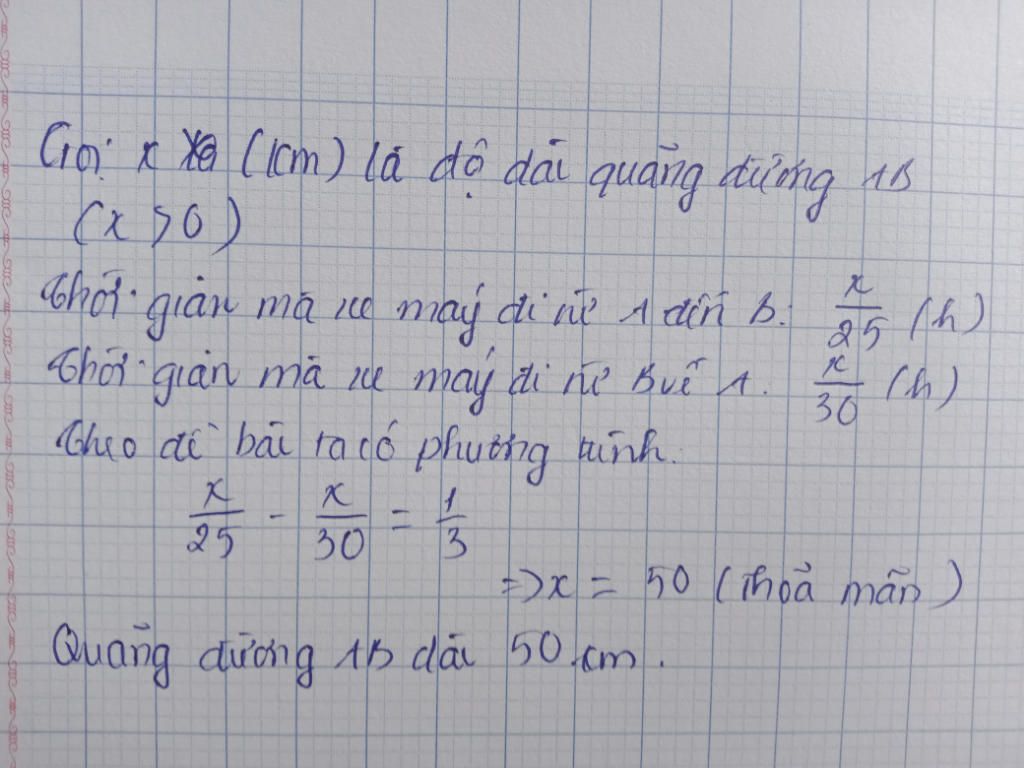 Gọi x (km) là độ dài quãng đường AB
(x > 0)
Thời gian mà xe máy đi từ A đến B: x/25 (h)
Thời gian mà xe máy đi từ B về A: x/30 (h)
Theo đề bài ra có phương trình:
x/25 - x/30 = 1/3
=> x = 50 (thoả mãn)
Quãng đường AB dài 50 km.